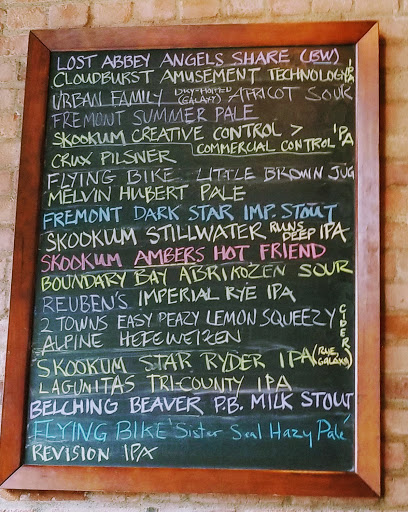 LOST ABBEY ANGELS SHARE (BW)
CLOUDBURST AMUSEMENT TECHNOLOGY IPA
URBAN FAMILY DRY-HOPPED (GALAXY) APRICOT SOUR
FREMONT SUMMER PALE
SKOOKUM CREATIVE CONTROL > COMMERCIAL CONTROL IPA
CRUX PILSNER
FLYING BIKE LITTLE BROWN JUG
MELVIN HUBERT PALE
FREMONT DARK STAR IMP. STOUT
SKOOKUM STILLWATER RUNS DEEP IPA
SKOOKUM AMBERS HOT FRIEND
BOUNDARY BAY ABRIKOZEN SOUR
REUBEN'S IMPERIAL RYE IPA
2 TOWNS EASY PEAZY LEMON SQUEEZY CIDER
ALPINE HEFEWEIZEN
SKOOKUM STAR RYDER IPA (RYE, GALAXY)
LAGUNITAS TRI-COUNTY IPA
BELCHING BEAVER P.B. MILK STOUT
FLYING BIKE 'Sister Seal Hazy Pale'
REVISION IPA